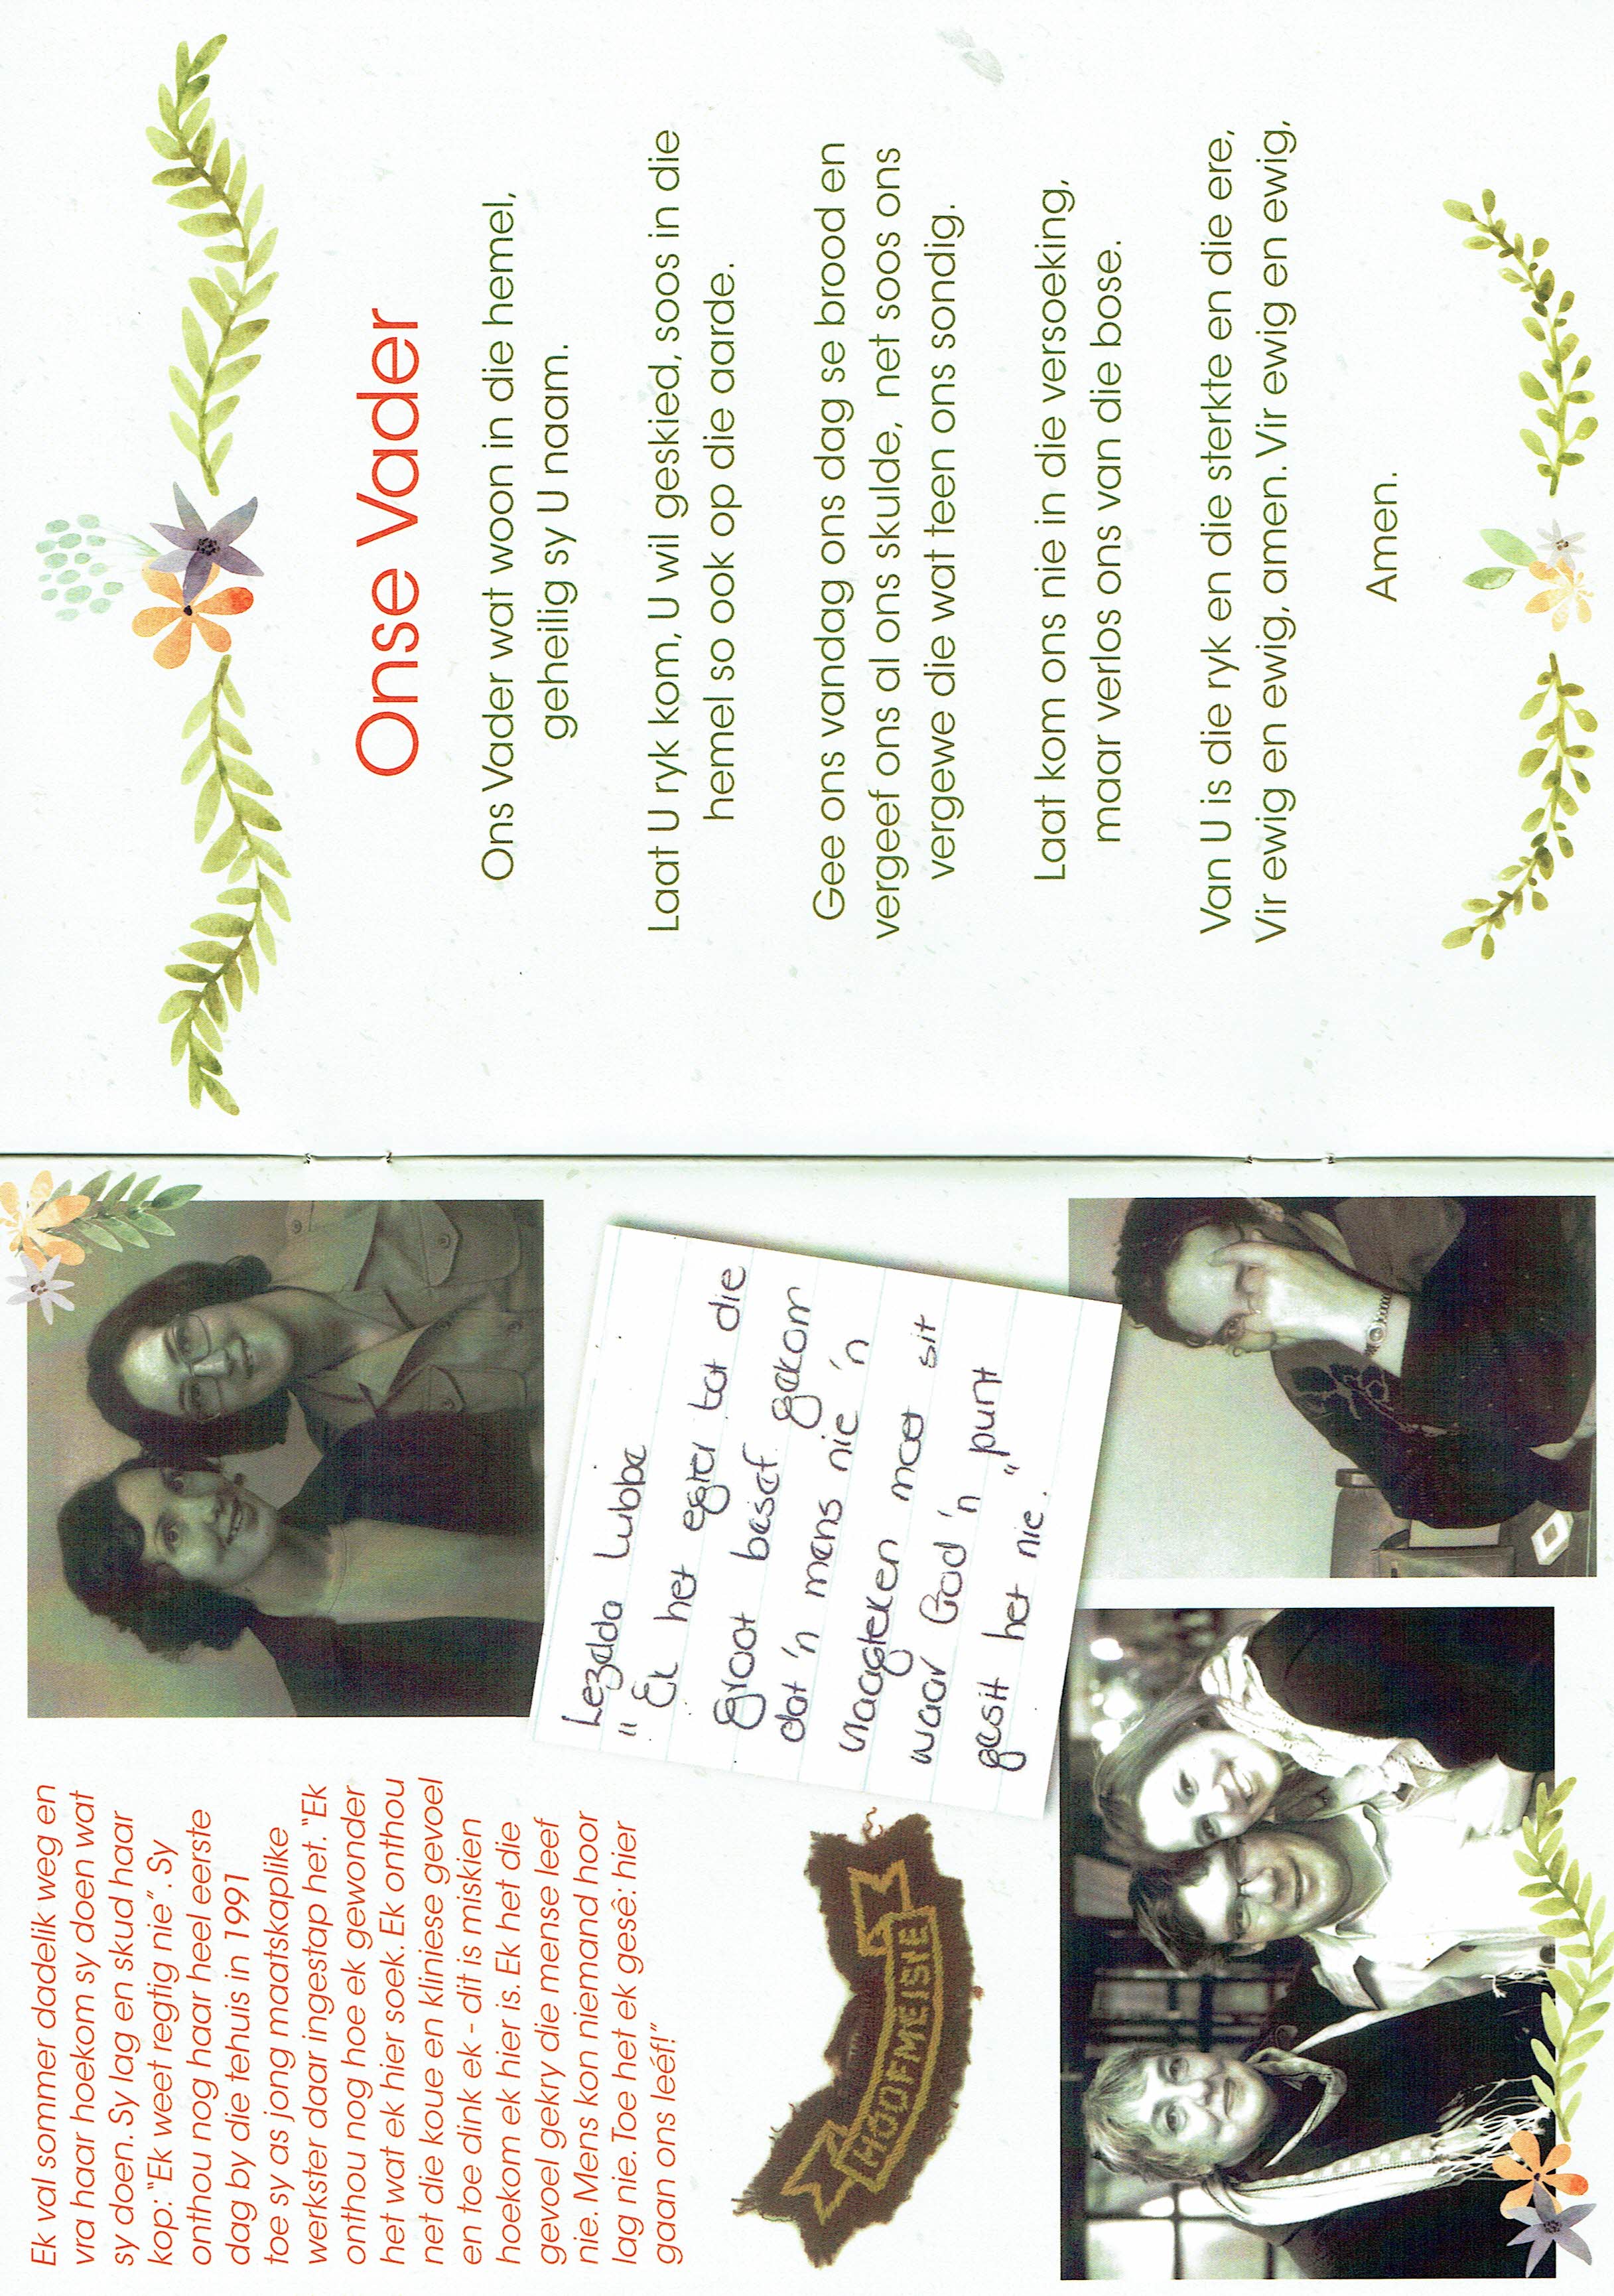 Ek val sommer dadelik weg en
vra haar hoekom sy doen wat
sy doen. Sy lag en skud haar
kop: "Ek weet regtig nie". Sy
onthou nog haar heel eerste
dag by die tehuis in 1991
toe sy as jong maatskaplike
werkster daar ingestap het. "Ek
onthou nog hoe ek gewonder
het wat ek hier soek. Ek onthou
net die koue en kliniese gevoel
en toe dink ek - dit is miskien
hoekom ek hier is. Ek het die
gevoel gekry die mense leef
nie. Mens kon niemand hoor
lag nie. Toe het ek gesê: hier
gaan ons lééf!"
HOOFMEISIE
Lezelda Lubbe
"Ek het egter tot die
groot besef gekom
dat 'n mens nie 'n
vraagteken moet sit
waar God 'n "punt
gesit het nie.
Onse Vader
Ons Vader wat woon in die hemel,
geheilig sy U naam.
Laat U ryk kom, U wil geskied, soos in die
hemel so ook op die aarde.
Gee ons vandag ons dag se brood en
vergeef ons al ons skulde, net soos ons
vergewe die wat teen ons sondig.
Laat kom ons nie in die versoeking,
maar verlos ons van die bose.
Van U is die ryk en die sterkte en die ere,
Vir ewig en ewig, amen. Vir ewig en ewig,
Amen.